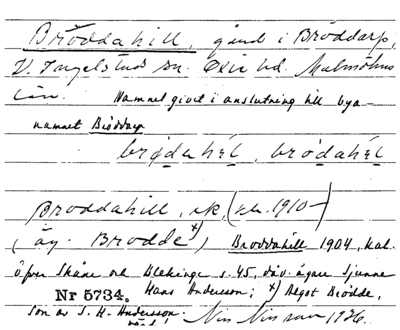 Broddahill, gård i Bröddarp,
V. Ingelstads sn. Oxie hd. Malmöhus
län. Namnet givet i anslutning till bya-
namnet Bröddarp
Broddahill, rk, (reg. 1910-
(äg. Brodde x)) Broddahill 1904, kal.
öfver Skåne och Blekinge s. 45, dåv. ägare Sjunne
Nr 5734. Hans Andersson; x) Bengt Brodde,
son av S. H. Andersson. Nils Nilsson 1926.